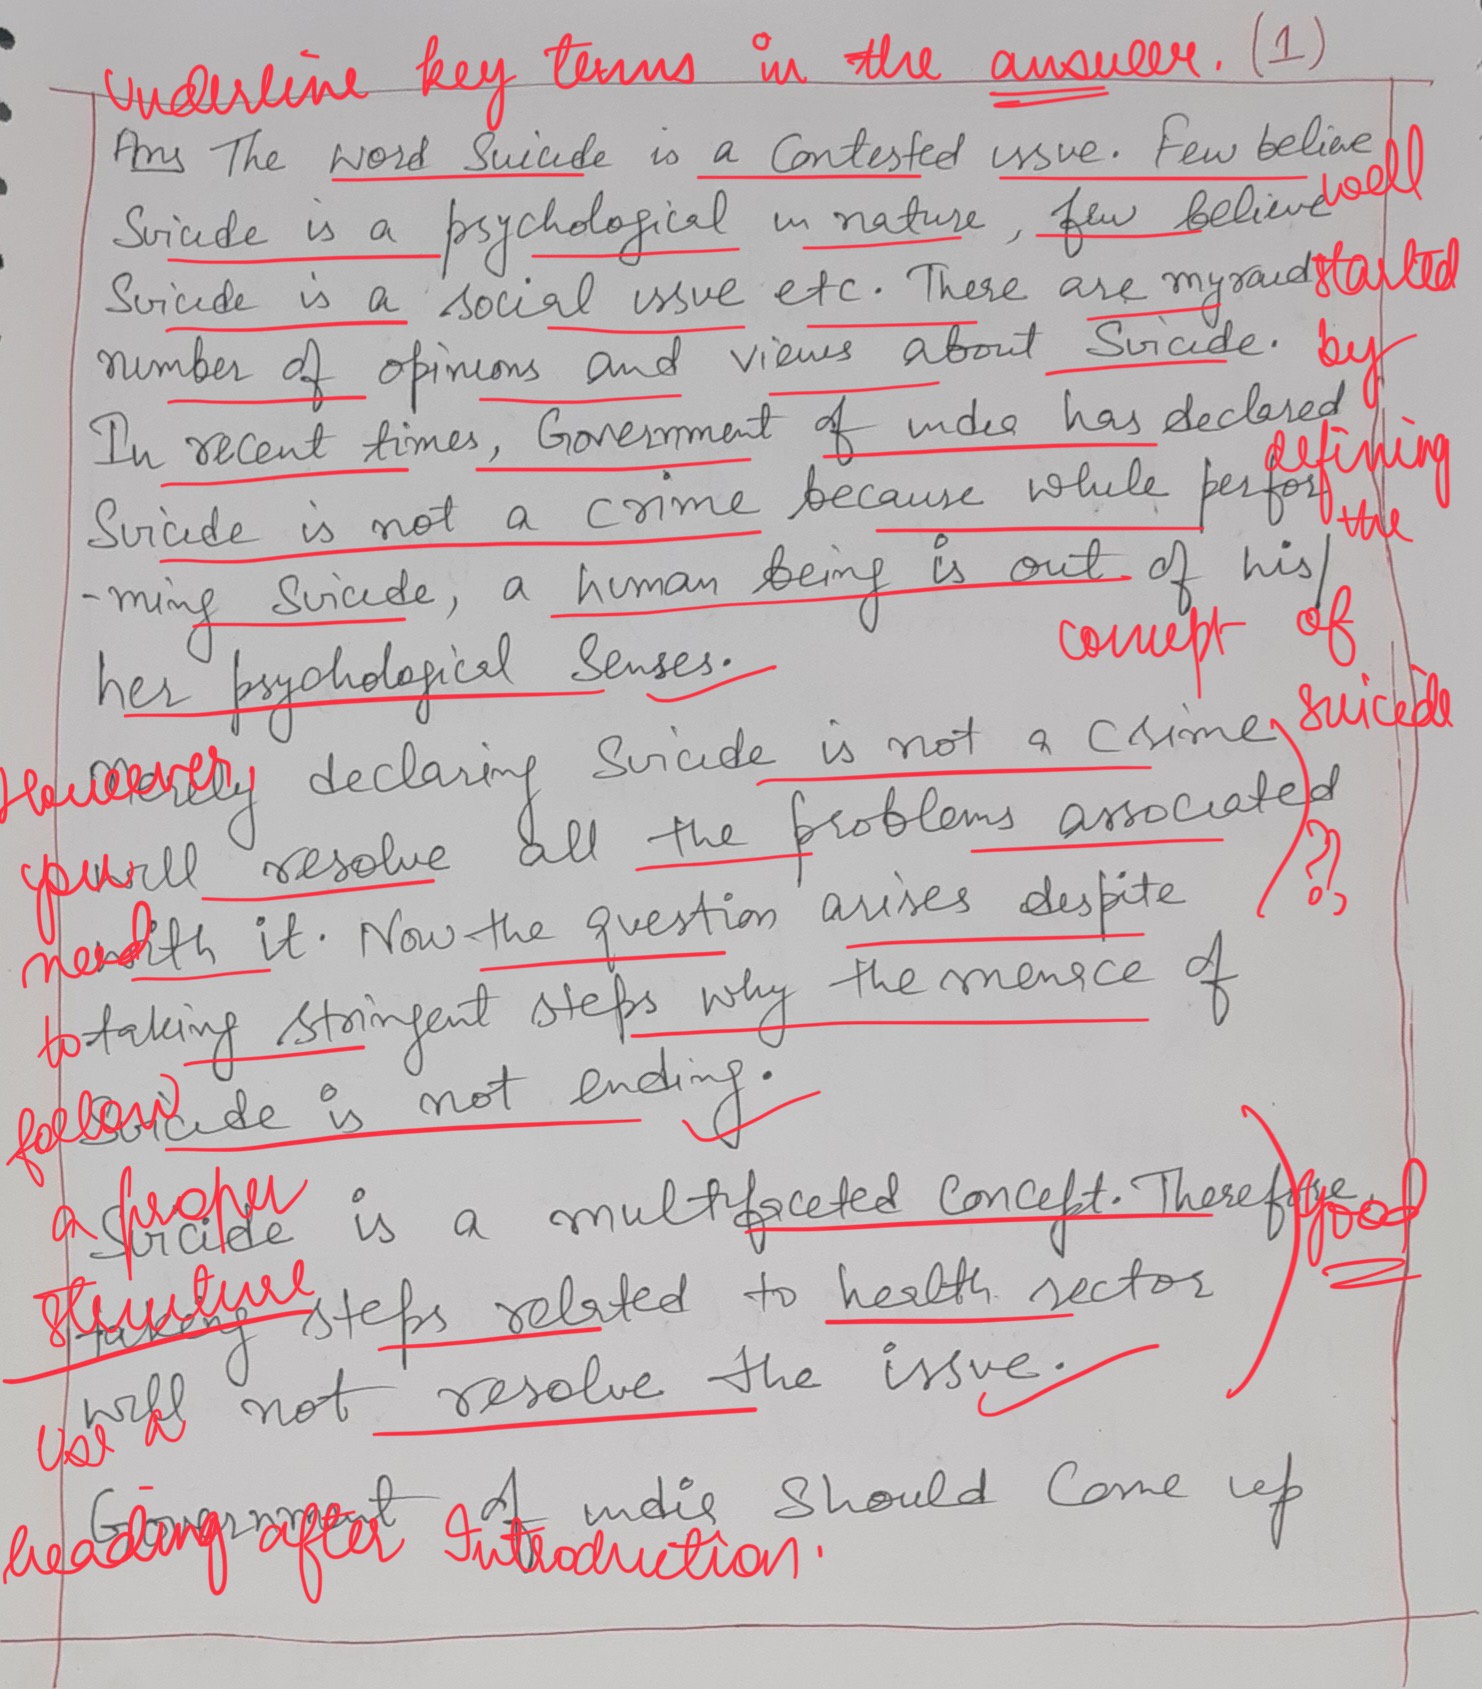 Underline key terms in the answer. (1)
Ans The word Suicide is a Contested issue. Few believe
Suicide is a psychological in nature, few believe
Suicide is a social issue etc. There are myraid
number of opinions and views about Suicide.
In recent times, Government of india has declared
Suicide is not a crime because while perfor
-ming Suicide, a human being is out of his/
her psychological Senses.
well
started
by
defining
the
concept of
suicide
Merely declaring Suicide is not a Crime
will resolve all the problems associated
with it. Now the question arises despite
taking stringent steps why the menace of
Suicide is not ending.
??
Suicide is a multifaceted Concept. Therefore,
taking steps related to health sector
will not resolve the issue.
good
Government of india Should Come up
However
you
need
to
follow
a proper
structure
Use a
heading after Introduction.